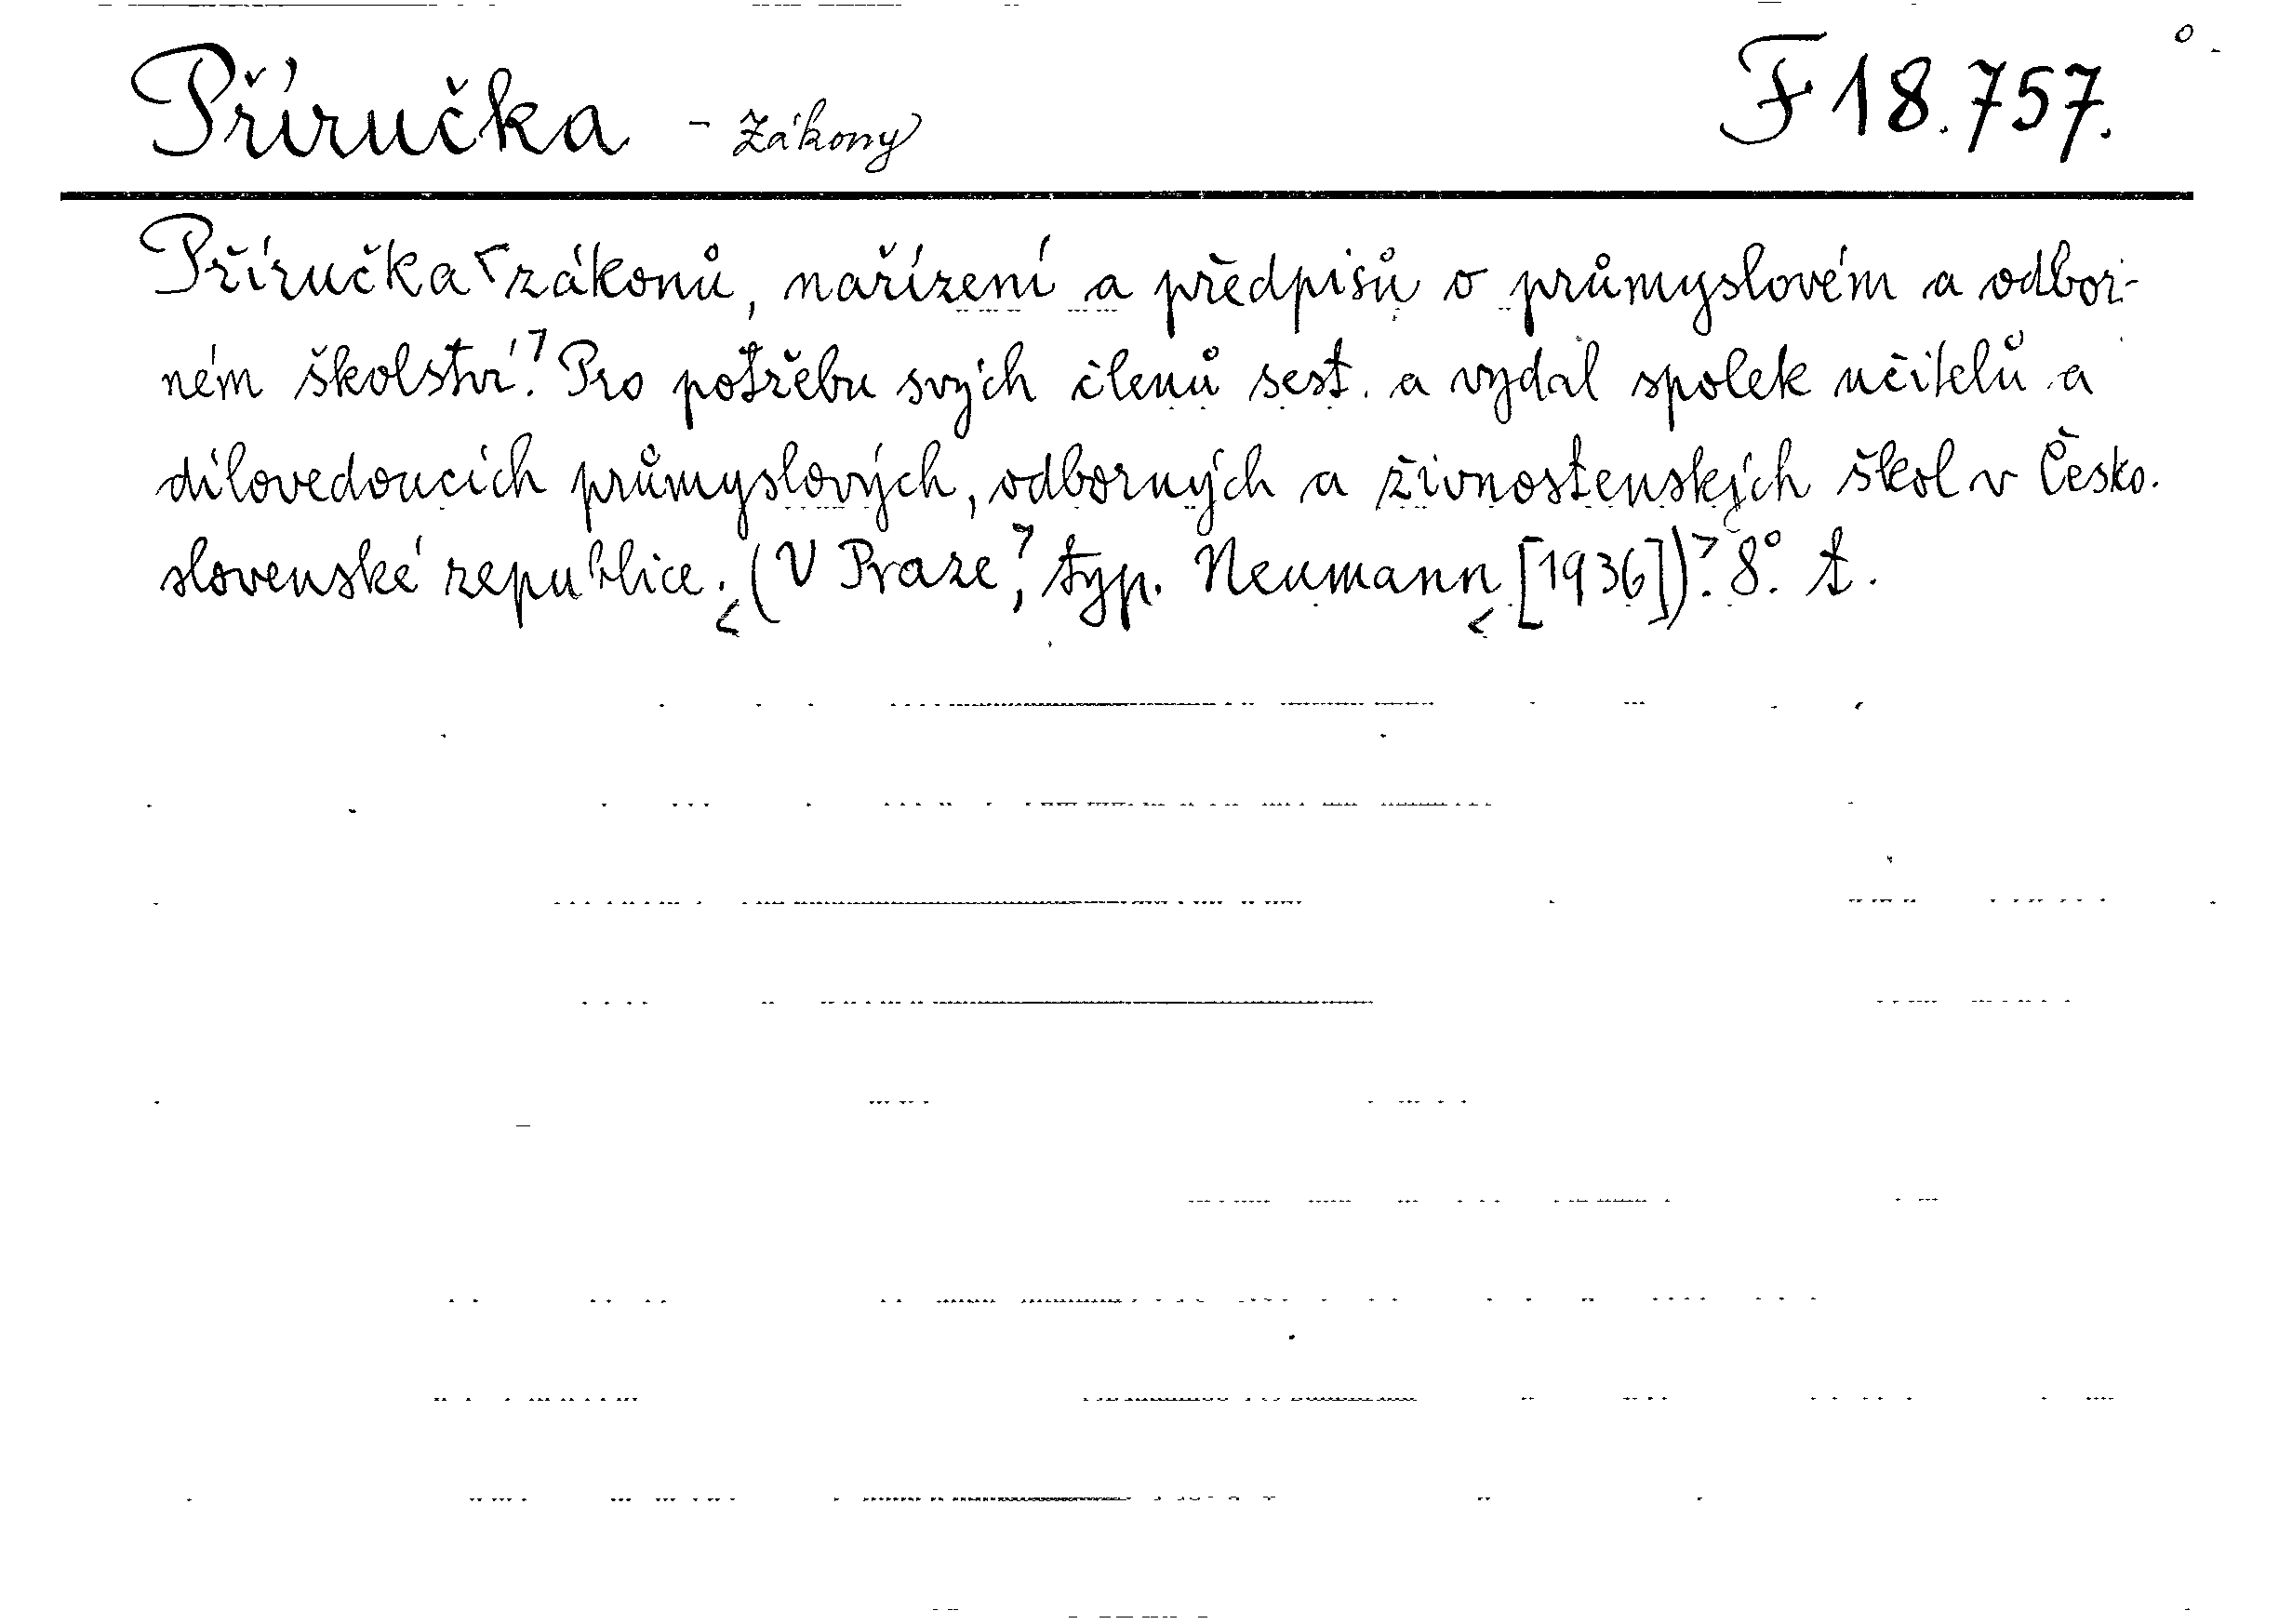 Příručka - Zákony F 18.757.
Příručka zákonů, nařízení a předpisů o průmyslovém a odbor-
ném školství. Pro potřebu svých členů sest. a vydal spolek učitelů a
dílovedoucích průmyslových, odborných a živnostenských škol v Česko-
slovenské republice. (V Praze, typ. Neumann [1936]). 8°. t.